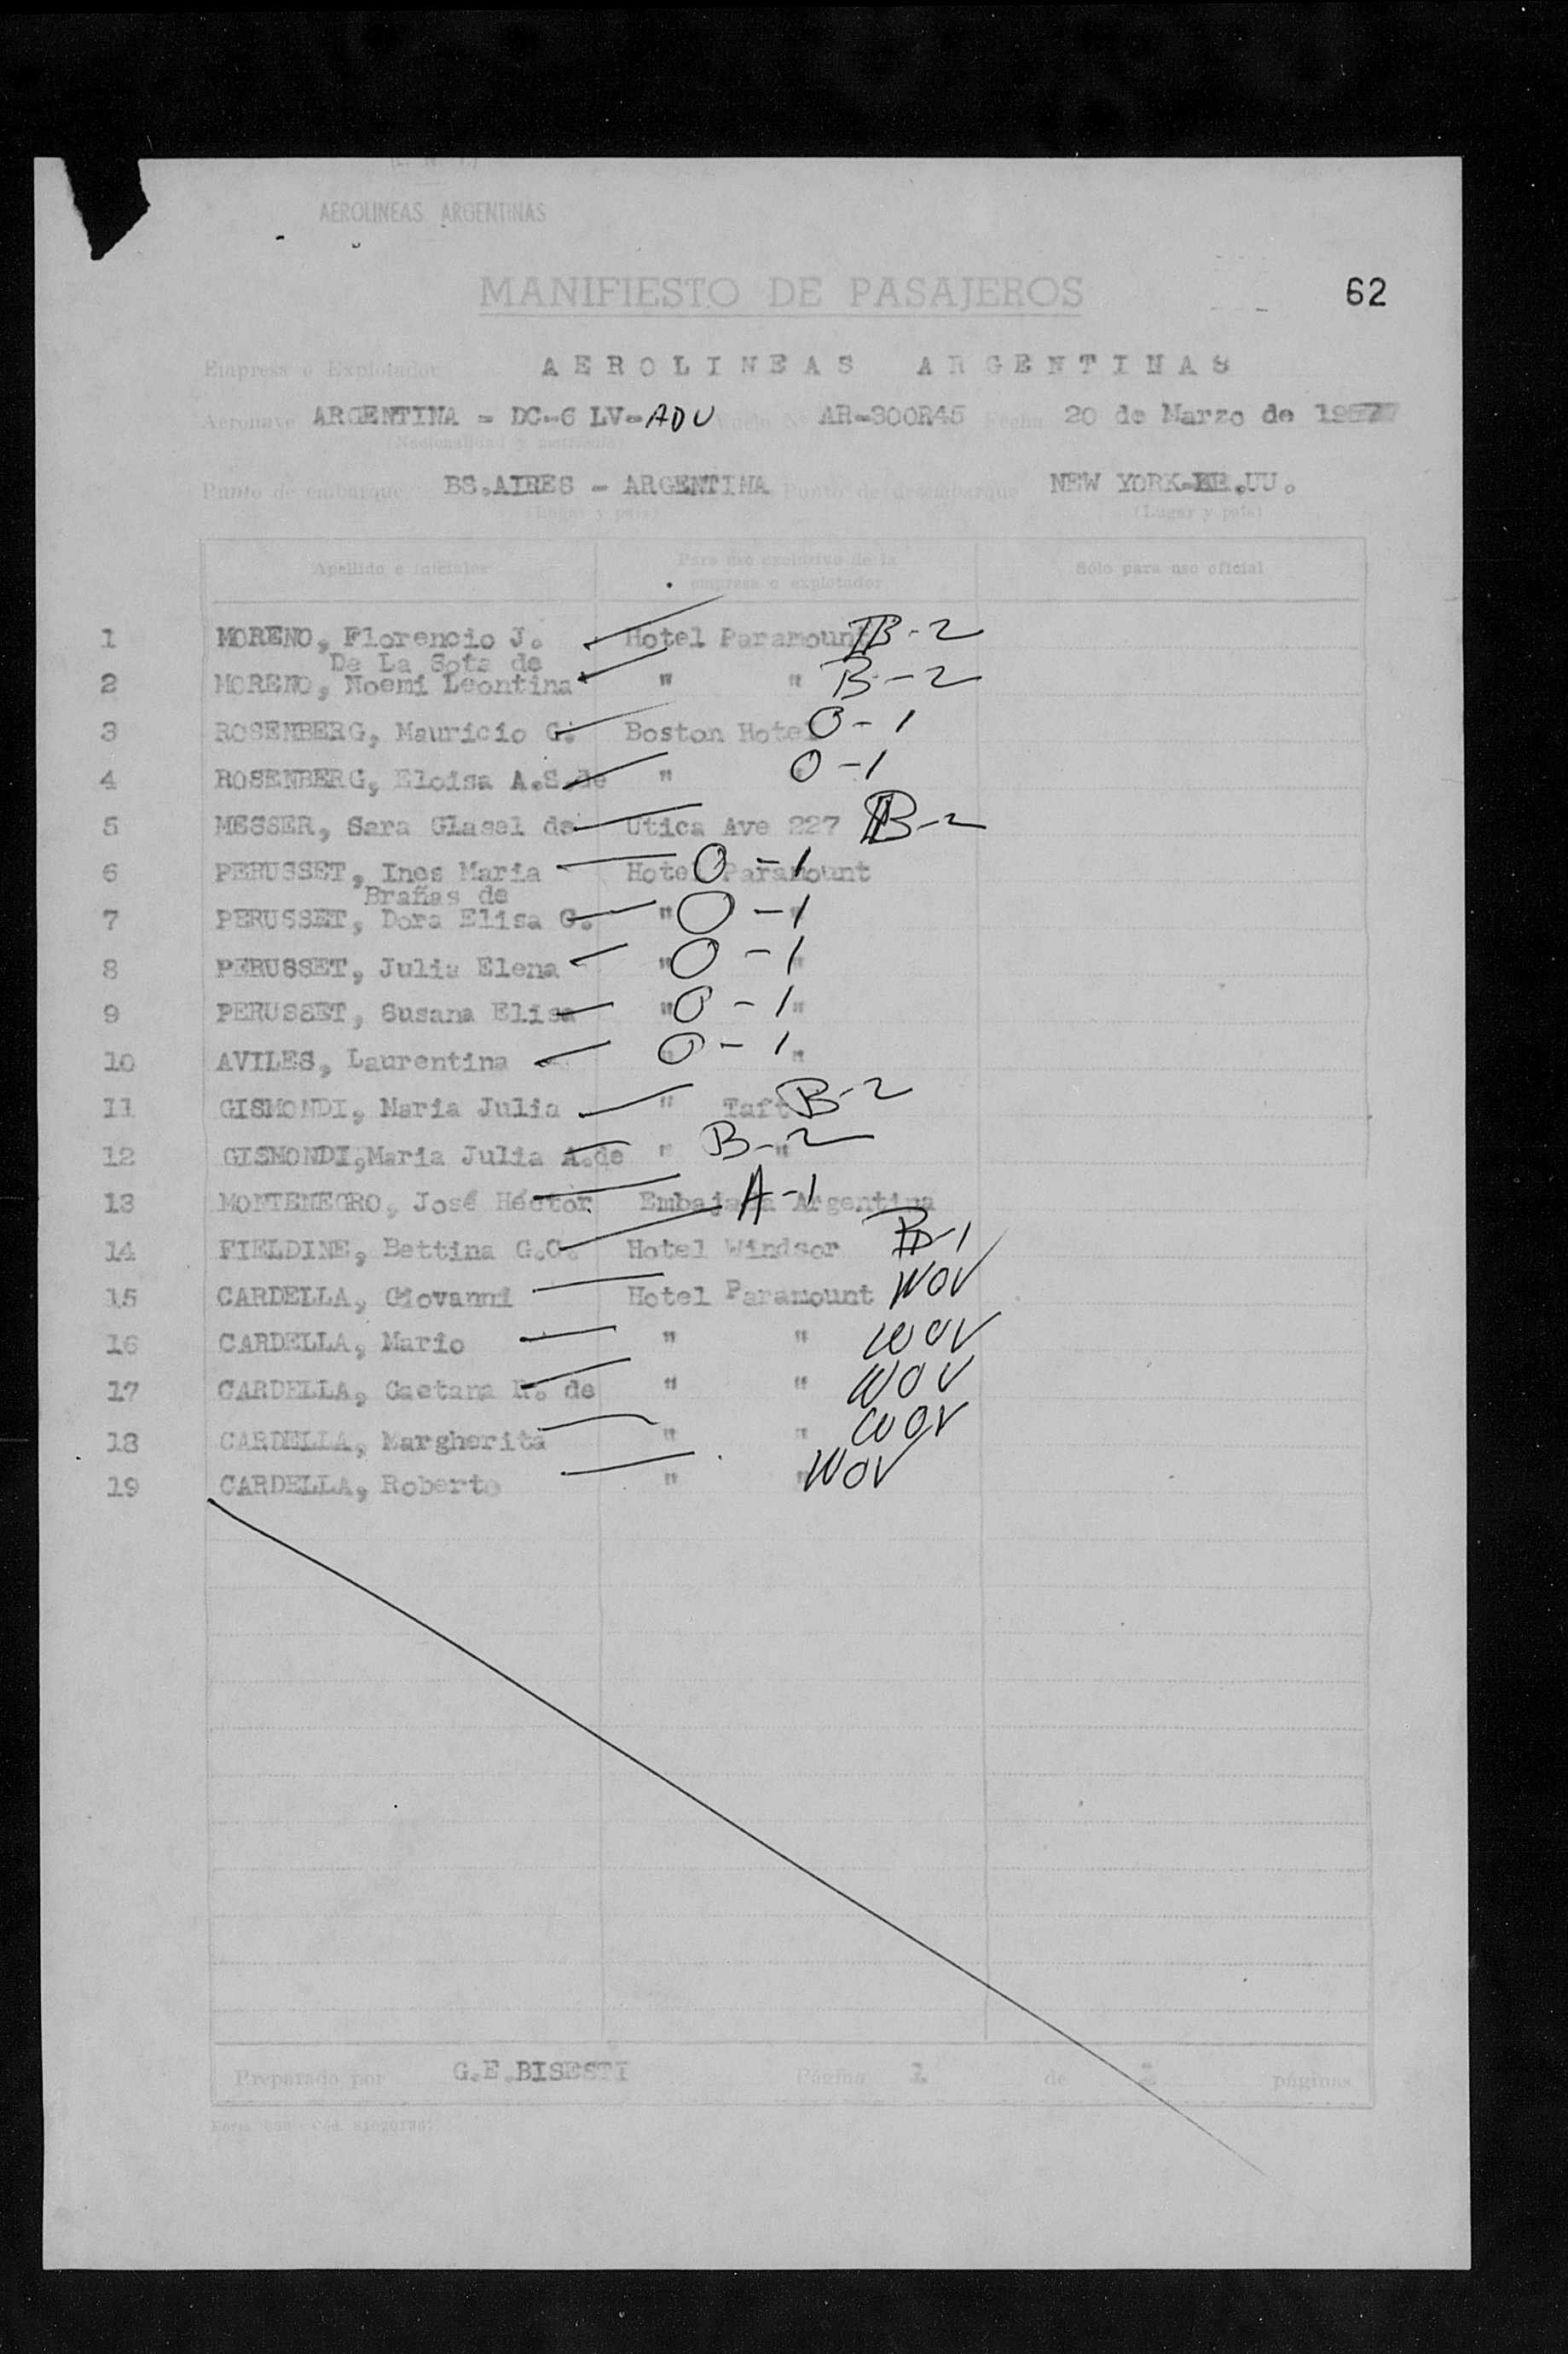 AEROLINEAS ARGENTINAS
MANIFIESTO DE PASAJEROS
62
Empresa o Explotador AEROLINEAS ARGENTINAS
Aeronave ARGENTINA - DC-6 LV-ADU Vuelo Nº AR-300R45 Fecha 20 de Marzo de 1957
(Nacionalidad y matrícula)
Punto de embarque BS.AIRES - ARGENTINA Punto de desembarque NEW YORK-EE.UU.
(Lugar y país) (Lugar y país)
Apellido e iniciales Para uso exclusivo de la empresa o explotador Sólo para uso oficial
1 MORENO, Florencio J. Hotel Paramount B-2
De La Sota de
2 MORENO, Noemi Leontina " " B-2
3 ROSENBERG, Mauricio G. Boston Hotel O-1
4 ROSENBERG, Eloisa A.S.de " O-1
5 MESSER, Sara Glasel de Utica Ave 227 B-2
6 PERUSSET, Ines Maria Hotel Paramount O-1
Brañas de
7 PERUSSET, Dora Elisa G. " " O-1
8 PERUSSET, Julia Elena " " O-1
9 PERUSSET, Susana Elisa " " O-1
10 AVILES, Laurentina " O-1
11 GISMONDI, Maria Julia " Taft B-2
12 GISMONDI,Maria Julia A.de " " B-2
13 MONTENEGRO, José Héctor Embajada Argentina A-1
14 FIELDINE, Bettina G.C. Hotel Windsor B-1
15 CARDELLA, Giovanni Hotel Paramount WOV
16 CARDELLA, Mario " " WOV
17 CARDELLA, Gaetana R. de " " WOV
18 CARDELLA, Margherita " " WOV
19 CARDELLA, Roberto " " WOV
Preparado por G.E.BISESTI Página 1 de páginas